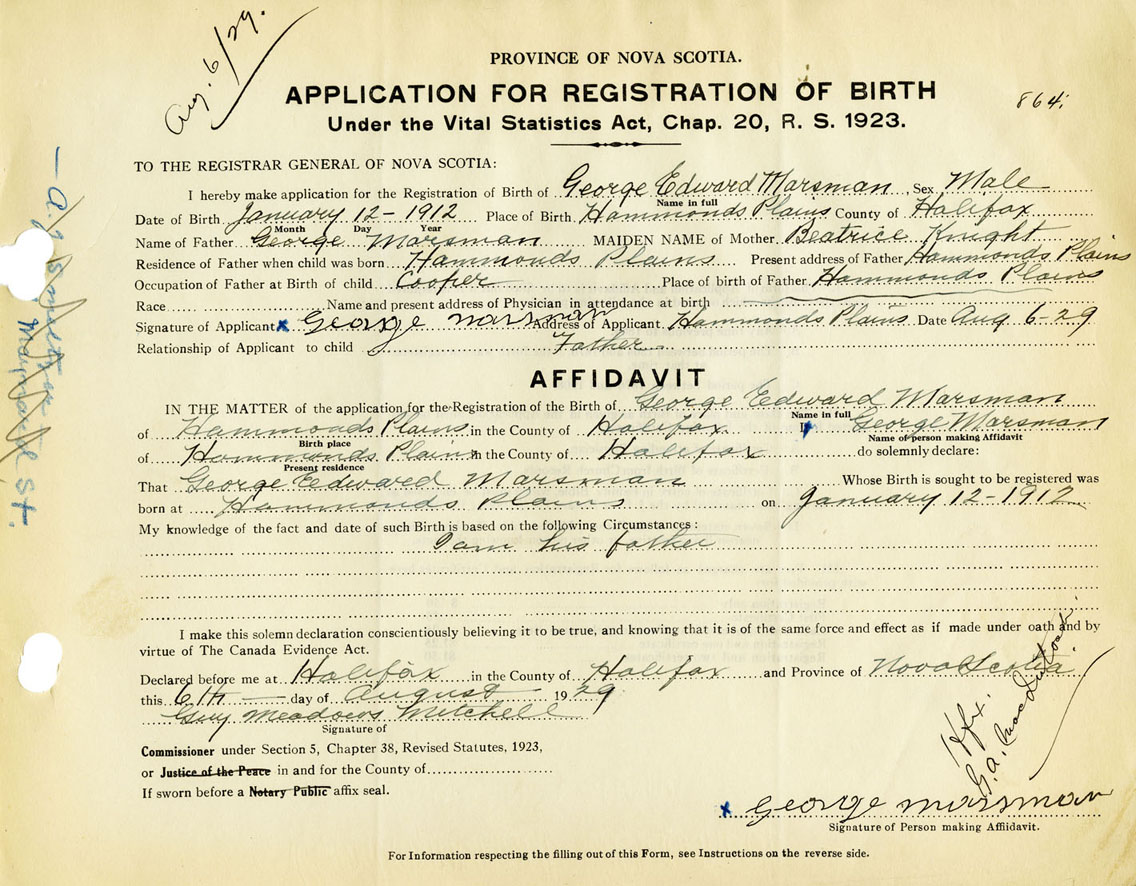 Aug. 6/29.
PROVINCE OF NOVA SCOTIA.
APPLICATION FOR REGISTRATION OF BIRTH
864.
Under the Vital Statistics Act, Chap. 20, R. S. 1923.
TO THE REGISTRAR GENERAL OF NOVA SCOTIA:
I hereby make application for the Registration of Birth of George Edward Marsman, Sex Male
Name in full
Date of Birth January 12 - 1912 Place of Birth Hammonds Plains County of Halifax
Month Day Year
Name of Father George Marsman MAIDEN NAME of Mother Beatrice Knight
Residence of Father when child was born Hammonds Plains Present address of Father Hammonds Plains
Occupation of Father at Birth of child Cooper Place of birth of Father Hammonds Plains
Race Name and present address of Physician in attendance at birth
Signature of Applicant x George Marsman Address of Applicant Hammonds Plains Date Aug 6-29
Relationship of Applicant to child Father
AFFIDAVIT
IN THE MATTER of the application for the Registration of the Birth of George Edward Marsman
Name in full
of Hammonds Plains in the County of Halifax I, George Marsman
Birth place Name of person making Affidavit
of Hammonds Plains in the County of Halifax do solemnly declare:
Present residence
That George Edward Marsman Whose Birth is sought to be registered was
born at Hammonds Plains on January 12-1912
My knowledge of the fact and date of such Birth is based on the following Circumstances:
I am his father
I make this solemn declaration conscientiously believing it to be true, and knowing that it is of the same force and effect as if made under oath and by
virtue of The Canada Evidence Act.
Declared before me at Halifax in the County of Halifax and Province of Nova Scotia
this 6th day of August 1929
Guy Meadows Mitchell
Signature of
Commissioner under Section 5, Chapter 38, Revised Statutes, 1923,
or Justice of the Peace in and for the County of
If sworn before a Notary Public affix seal.
Hfx.
G. A.
x George Marsman
Signature of Person making Affiidavit.
For Information respecting the filling out of this Form, see Instructions on the reverse side.
St.